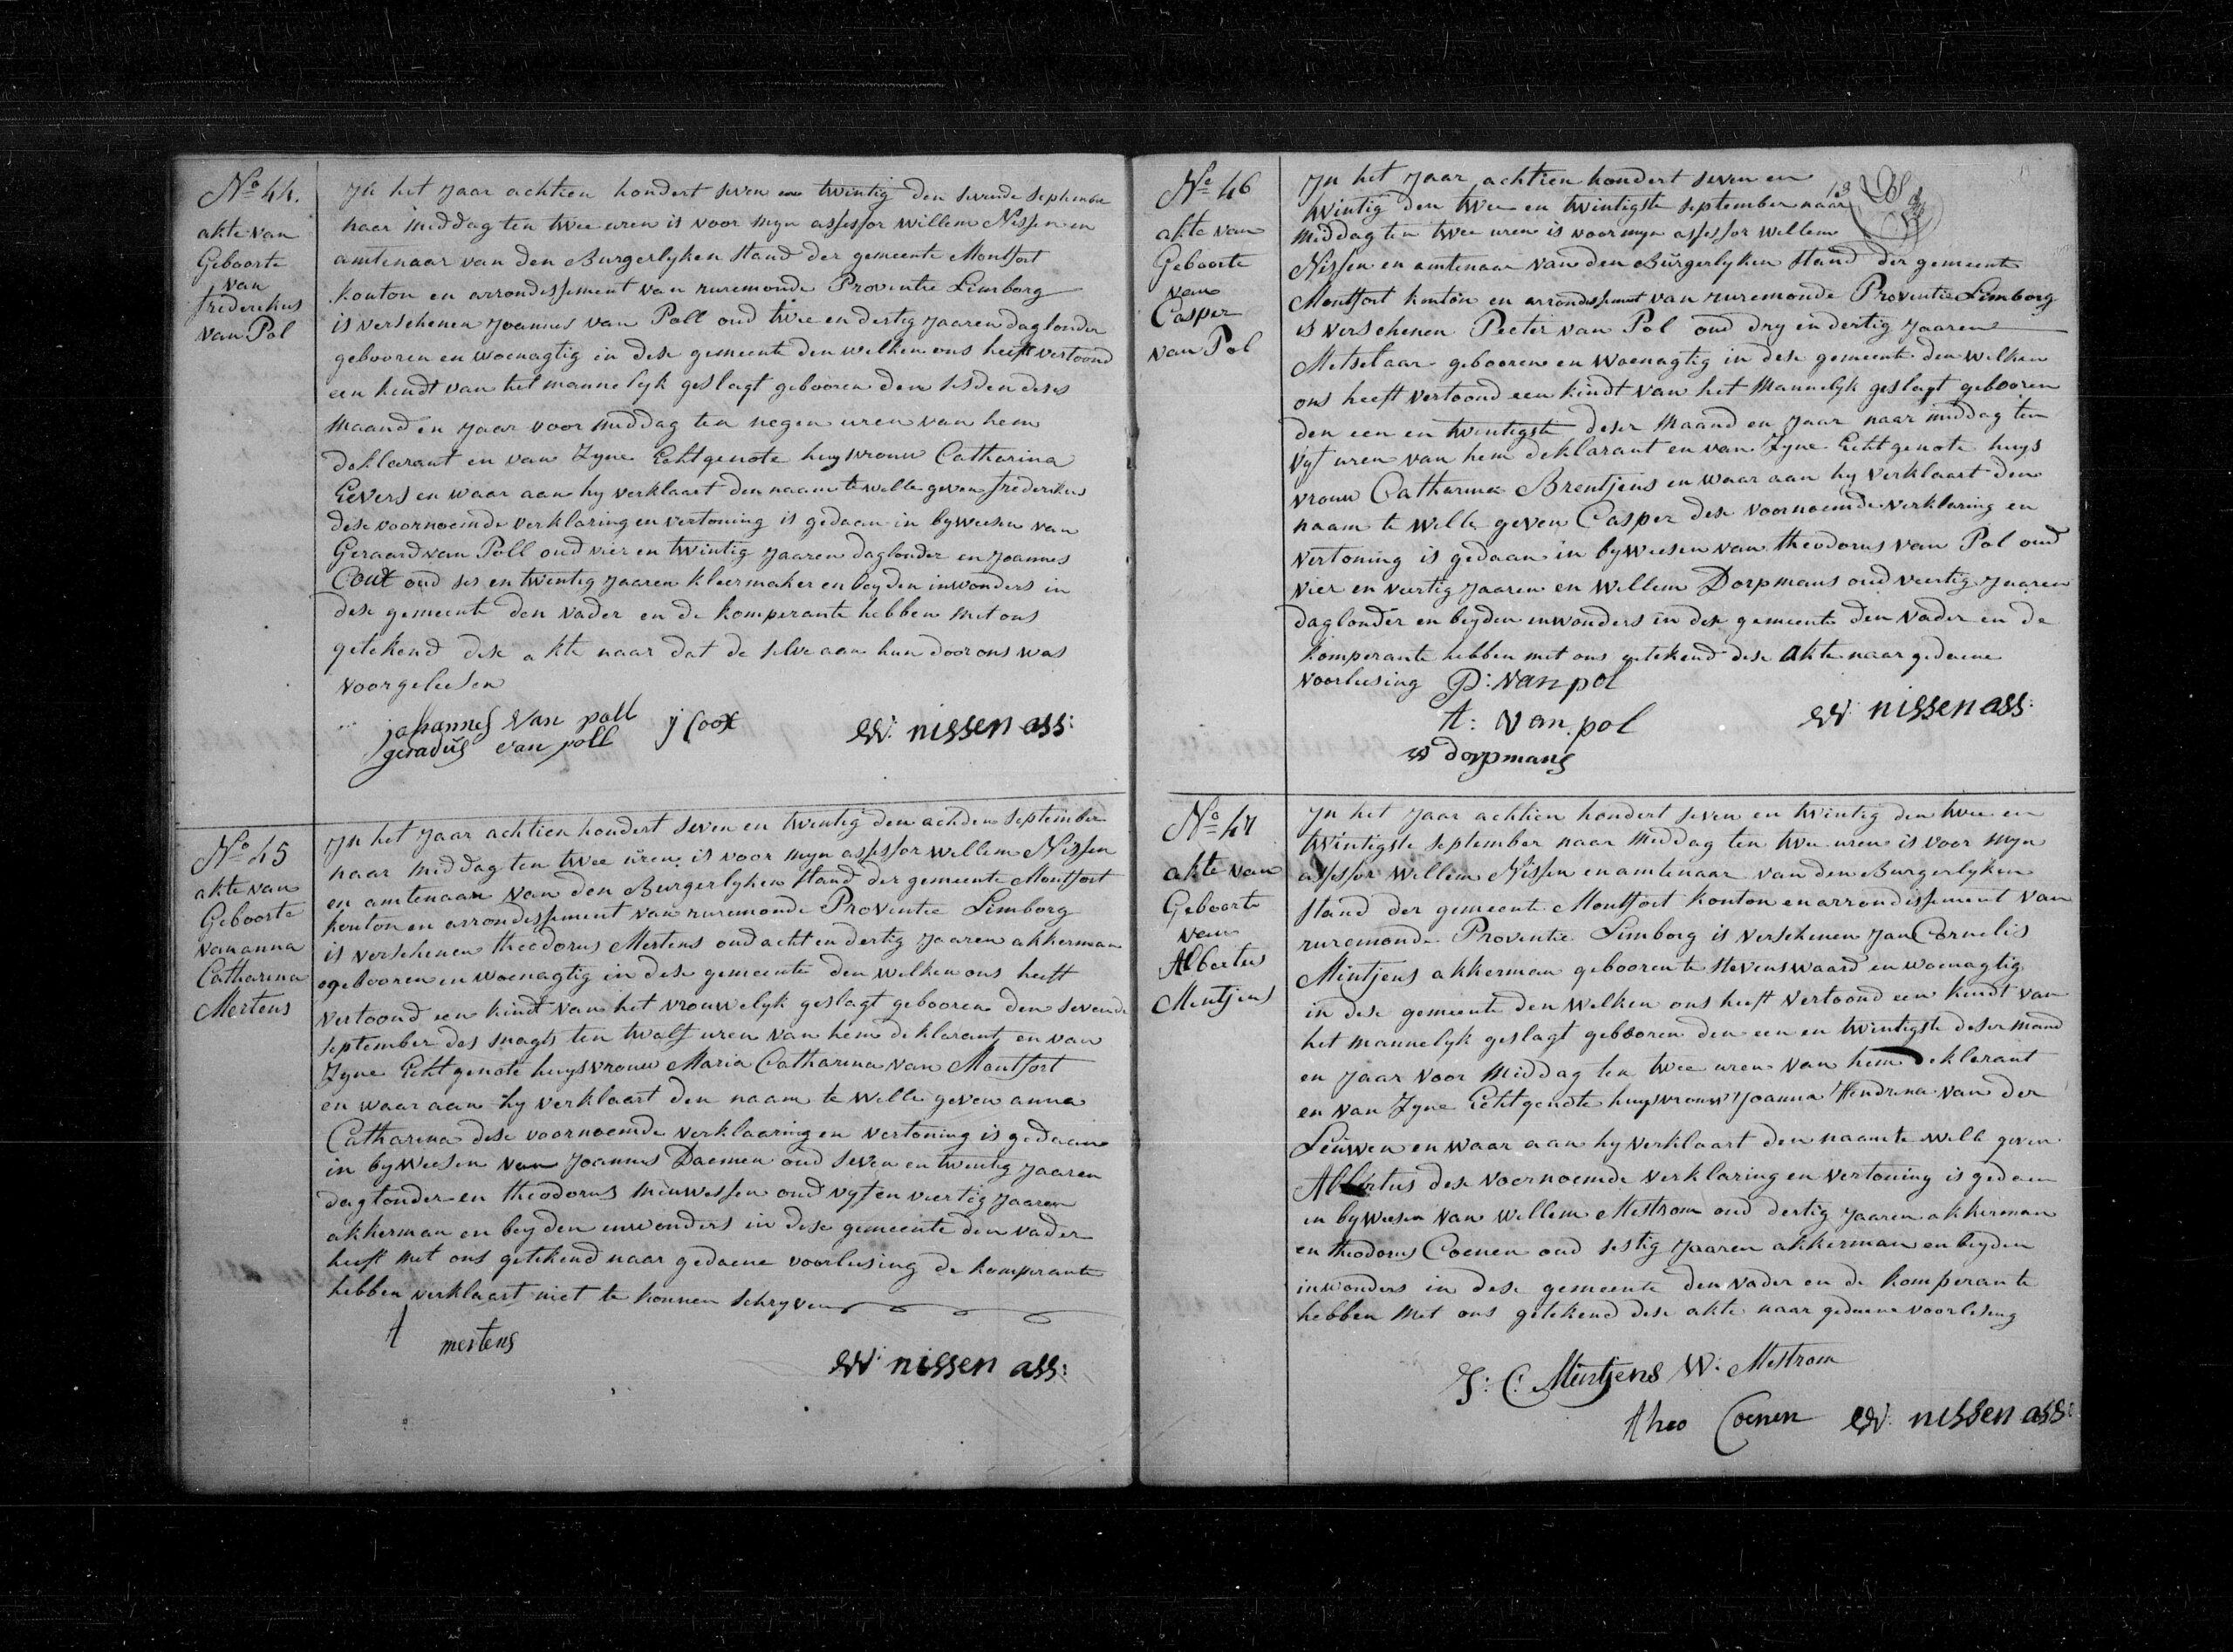 No 44.
akte van
Geboorte
van
frederikus
van Pol
Jn het Jaar achtien hondert seven en twintig den sevende september
naar middag ten twee uren is voor myn assessor willem Nissen en
amtenaar van den Burgerlyken stand der gemeente Montfort
konton en arrondissement van ruremonde Proventie Limborg
is verschenen Joannes van Poll oud twee en dertig Jaaren daglonder
gebooren en woenagtig in dese gemeente den welken ons heeft vertoond
een kindt van het mannelyk geslagt gebooren den sesden deses
maand en Jaar voor middag ten negen uren van hem
deklarant en van Zyne Echtgenote huysvrouw Catharina
Gevers en waar aan hy verklaart den naam te wille geven frederikus
dese voornoemde verklaring en vertoning is gedaan in byweesen van
Geraard van Poll oud vier en twintig Jaaren daglonder en Joannes
Coux oud ses en twentig Jaaren kleermaker en beyden inwonders in
dese gemeente den vader en de komperante hebben met ons
getekend dese akte naar dat de selve aan hun door ons was
voorgeleesen
johannes van poll j Coox
geradus van poll W: nissen ass:
No 45
akte van
Geboorte
van anna
Catharina
Mertens
Jn het Jaar achtien hondert seven en twentig den achden september
naar middag ten twee uren is voor myn assessor willem Nissen
en amtenaar van den Burgerlyken stand der gemeente Montfort
konton en arrondissement van ruremonde Proventie Limborg
is verschenen theodorus Mertens oud acht en dertig Jaaren akkerman
gebooren en woenagtig in dese gemeente den welken ons heeft
vertoond een kindt van het vrouwelyk geslagt gebooren den sevende
september des snagts ten twalf uren van hem deklarant en van
Zyne Echtgenote huysvrouw Maria Catharina van Montfort
en waar aan hy verklaart den naam te wille geven anna
Catharina dese voornoemde verklaaring en vertoning is gedaan
in byweesen van Joannes Daemen oud seven en twintig Jaaren
daglonder en theodorus meuwessen oud vyf en viertig Jaaren
akkerman en beyden inwonders in dese gemeente den vader
heeft met ons getekend naar gedaene voorleesing de komperante
hebben verklaart niet te konnen schryven
t mertens
W: nissen ass:
No 46
akte van
Geboorte
van
Casper
van Pol
Jn het Jaar achtien hondert seven en
twintig den twee en twintigste september naar
middag ten twee uren is voor myn assessor willem
Nissen en amtenaar van den Burgerlyken stand der gemeente
Montfort konton en arrondissement van ruremonde Proventie Limborg
is verschenen Peeter van Pol oud dry en dertig Jaaren
Metselaar gebooren en woenagtig in dese gemeente den welken
ons heeft vertoond een kindt van het mannelyk geslagt gebooren
den een en twintigste deser maand en Jaar naar middag ten
vyf uren van hem deklarant en van Zyne Echtgenote huys
vrouw Catharina Brentjens en waar aan hy verklaart den
naam te wille geven Casper dese voornoemde verklaring en
vertoning is gedaan in byweesen van theodorus van Pol oud
vier en viertig Jaaren en willem Dorpmans oud veertig Jaaren
daglonder en beyden inwonders in dese gemeente den vader en de
komperante hebben met ons getekend dese akte naar gedaene
voorleesing P: van pol
t: van pol W nissen ass:
w dorpmans
No 47
akte van
Geboorte
van
Albertus
Mentjens
Jn het Jaar achtien hondert seven en twintig den twee en
twintigste september naar middag ten twee uren is voor myn
assessor willem Nissen en amtenaar van den Burgerlyken
stand der gemeente Montfort konton en arrondissement van
ruremonde Proventie Limborg is verschenen Jan Cornelis
Mintjens akkerman gebooren te stevenswaard en woenagtig
in dese gemeente den welken ons heeft vertoond een kindt van
het mannelyk geslagt gebooren den een en twintigste deser mand
en Jaar voor middag ten twee uren van hem deklerant
en van Zyne Echtgenote huysvrouw Joanna Hendrina van der
Leuwen en waar aan hy verklaart den naam te wille geven
Albertus dese voernoemde verklaring en vertoning is gedaen
in byweesen van willem Mestrom oud dertig Jaaren akkerman
en theodorus Coenen oud sestig Jaaren akkerman en beyden
inwonders in dese gemeente den vader en de komperante
hebben met ons getekend dese akte naar gedaene voorlesing
J: C: Mintjens W: Mestrom
theo Coenen W: nissen ass: